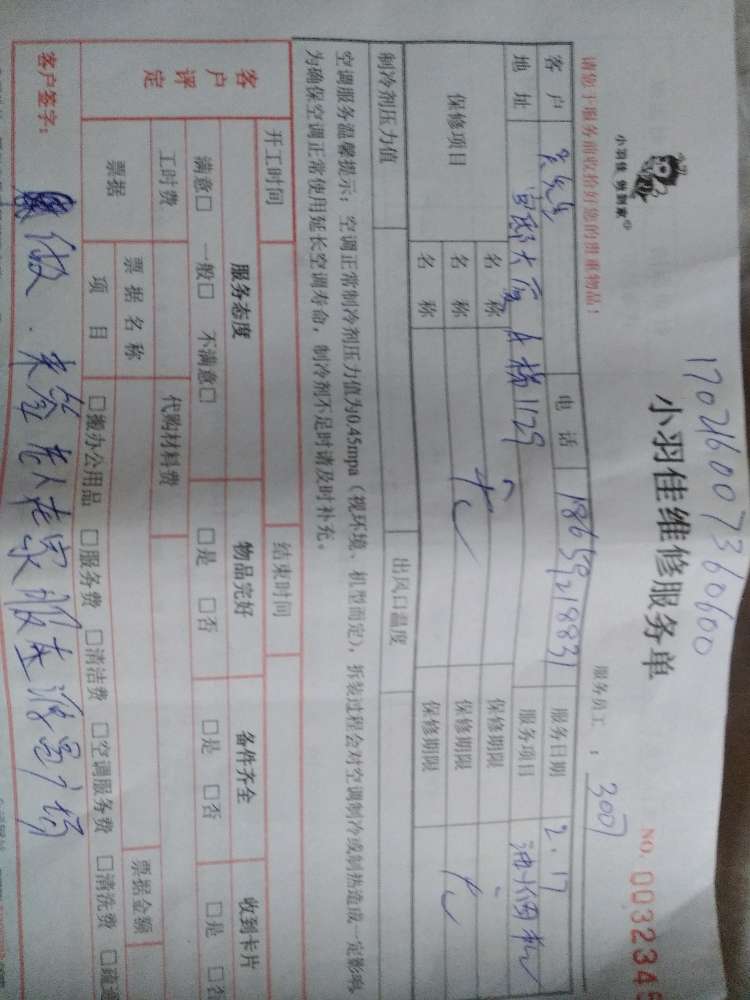 170216007360600
小羽佳 劳到家®
小羽佳维修服务单
NO. 0032345
请您于服务前收拾好您的贵重物品！
服务员工 ： 3007
客户 电话 18659218831 服务日期 2.17
地址 大厦A栋1129 服务项目 油烟机
保修项目 名称 保修期限
名称 保修期限
名称 保修期限
制冷剂压力值 出风口温度
空调服务温馨提示：空调正常制冷剂压力值为0.45mpa（视环境、机型而定），拆装过程会对空调制冷或制热造成一定影响，
为确保空调正常使用延长空调寿命，制冷剂不足时请及时补充。
开工时间 结束时间
客户评定 服务态度 物品完好 备件齐全 收到卡片
满意□ 一般□ 不满意□ □是 □否 □是 □否 □是 □否
工时费 代购材料费
票据 票据名称 票据金额
项目 □搬办公用品 □服务费 □清洁费 □空调服务费 □清洗费 □疏通
客户签字：